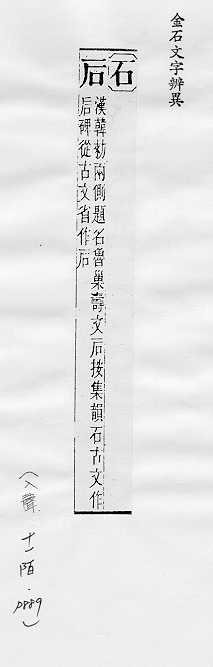 金石文字辨異
石 后
漢韓勑兩側題名魯巢壽文后按集韻石古文作
后碑從古文省作后
（入聲．十一陌．p889）